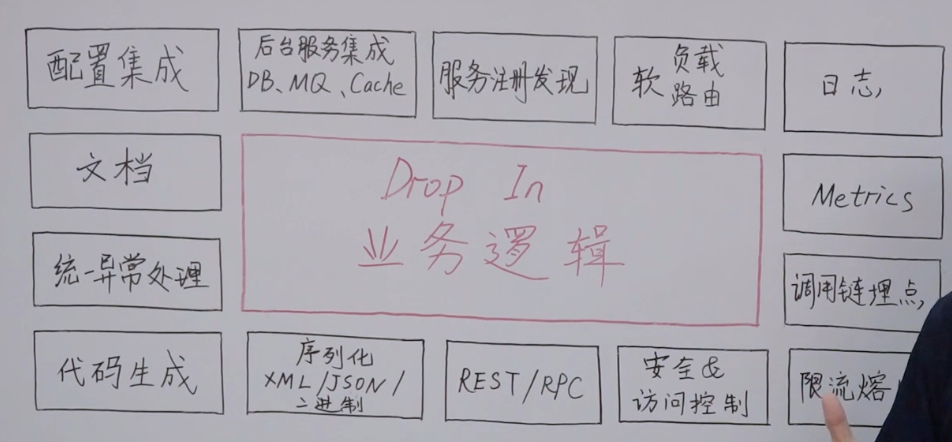 配置集成
后台服务集成
DB、MQ、Cache
服务注册发现
负载
软路由
日志
文档
Drop In
业务逻辑
Metrics
统一异常处理
调用链埋点
代码生成
序列化
XML/JSON/
二进制
REST/RPC
安全&
访问控制
限流熔